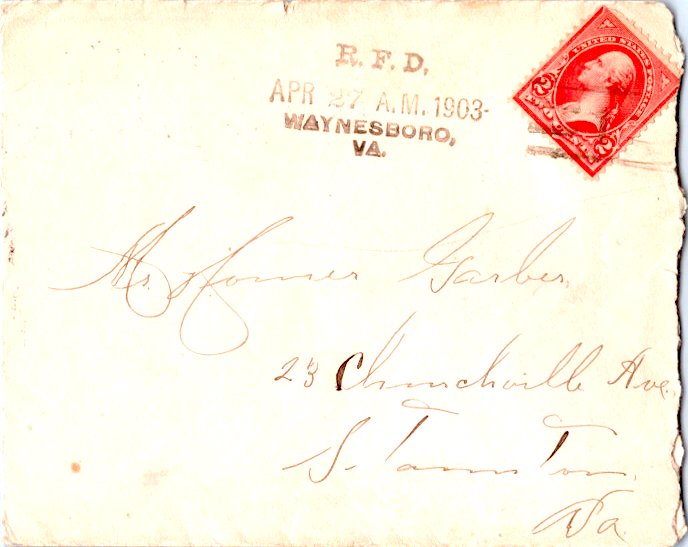 R. F. D.
APR 27 A.M. 1903
WAYNESBORO,
VA.
UNITED STATES POSTAGE
2 2
Mr. Homer Garber
23 Churchville Ave.
Staunton
Va.